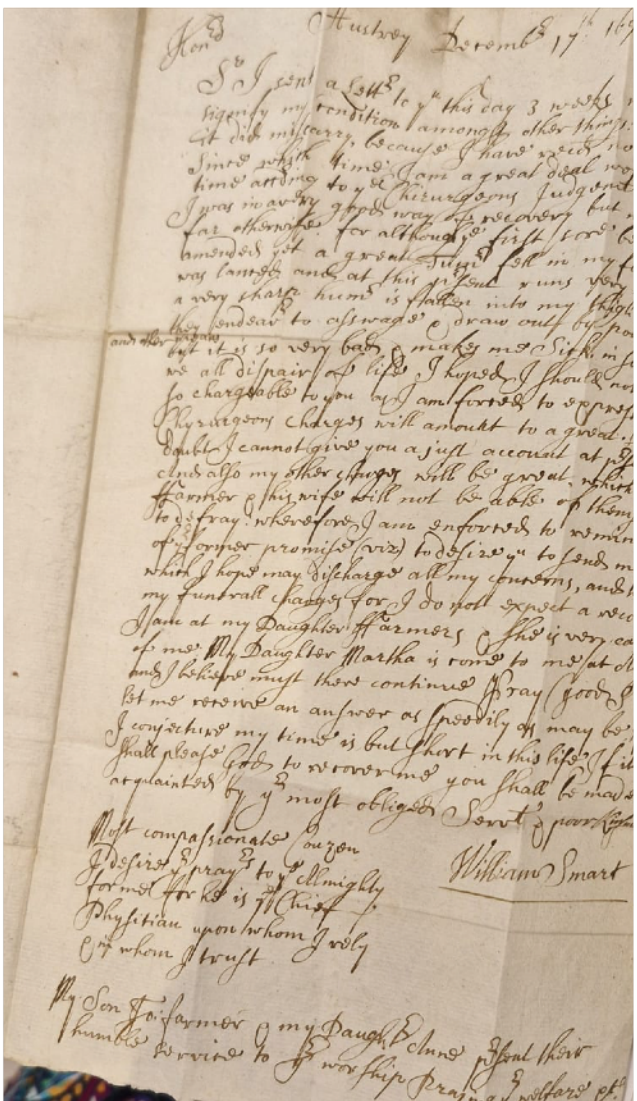 Austrey Decemb^r 17^th 167
Hon^rd
S^r I sent a Lett^r to y^u this day 3 weeks
signify my condition amongst other things
it did miscarry, because I have rec̄d no
Since which time I am a great deal wo
time accding to y^e Chirurgeons Judgem^t
I was in a very good way of recovery but
far otherwise for although y^e first sore be
amended yet a great Tum^r fell in my f
was lanced and at this p̄sent runs very
a very sharp hum^r is fallen into my thigh
they endeav^r to asswage & draw out by po
and other means
but it is so very bad & makes me Sick in s
we all dispair of life I hoped I should no
so chargeable to you as I am forced to expres
Chyrurgeons charges will amount to a great
doubt I cannot give you a just account at p̄s
And also my other charges will be great, which
ffarmer & his wife will not be able of them
to defray: wherefore I am enforced to remin
of y^r former promise (viz) to desire y^u to send m
which I hope may discharge all my concerns, and
my funerall charges for I do not expect a reco
I am at my Daughter ffarmers & she is very ca
of me My Daughter Martha is come to me at
and I believe must there continue Pray (good S
let me receive an answer as speedily as may be
I conjecture my time is but short in this life If it
shall please God to recover me you shall be made
acquainted by y^r most obliged Serv^t & poor
William Smart
Most compassionate Couzen
I desire y^r pray^rs to y^e Almighty
for me for he is y^e Chief
Physitian upon whom I rely
& in whom I trust
My Son Jo: ffarmer & my Daught^r Anne p̄sent their
humble service to y^r worship Praying y^r welfare &c